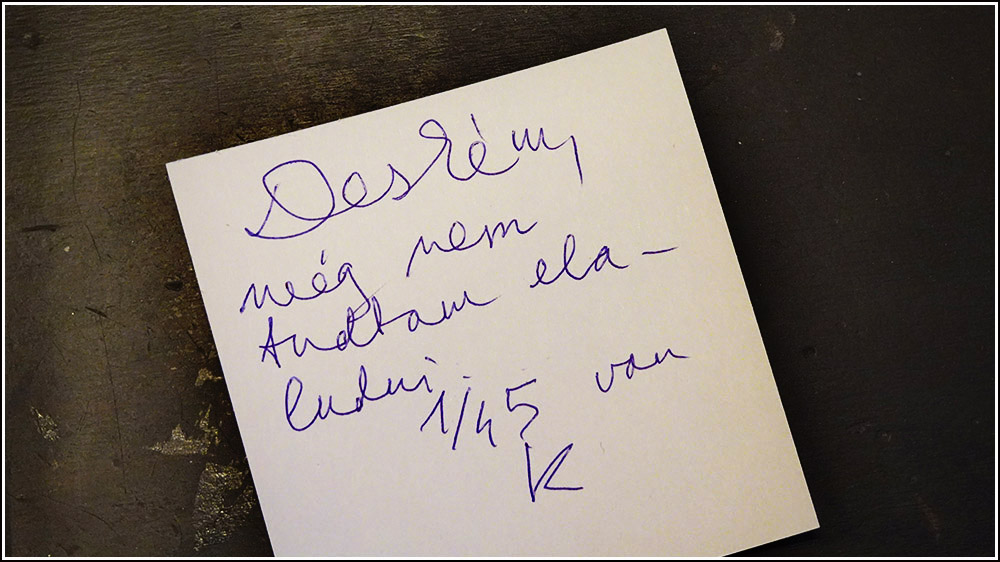 Desrém,
még nem
tudtam ela-
ludni.
1/45 van
K